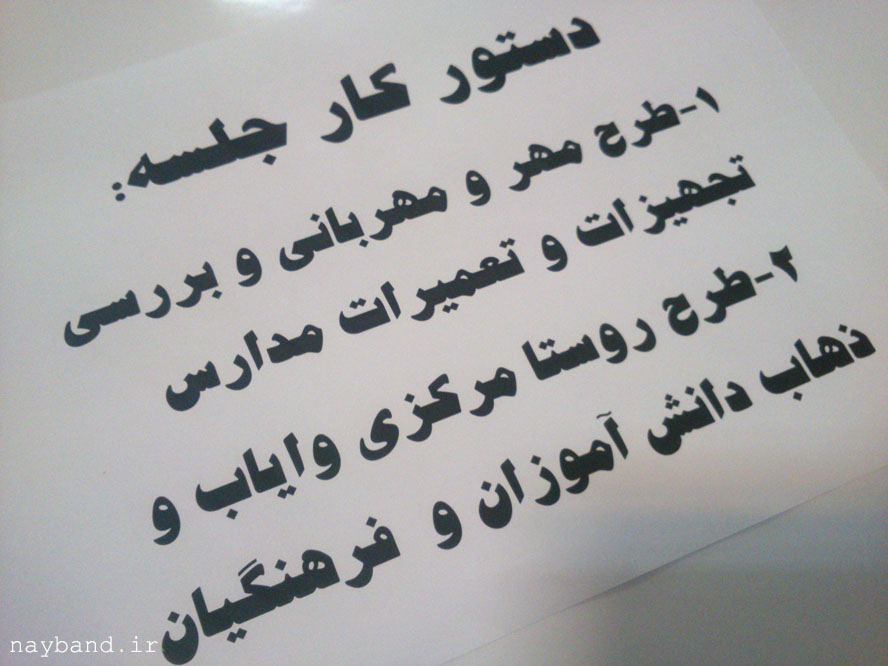 دستور کار جلسه:
۱-طرح مهر و مهربانی و بررسی
تجهیزات و تعمیرات مدارس
۲-طرح روستا مرکزی وایاب و
ذهاب دانش آموزان و فرهنگیان
nayband.ir